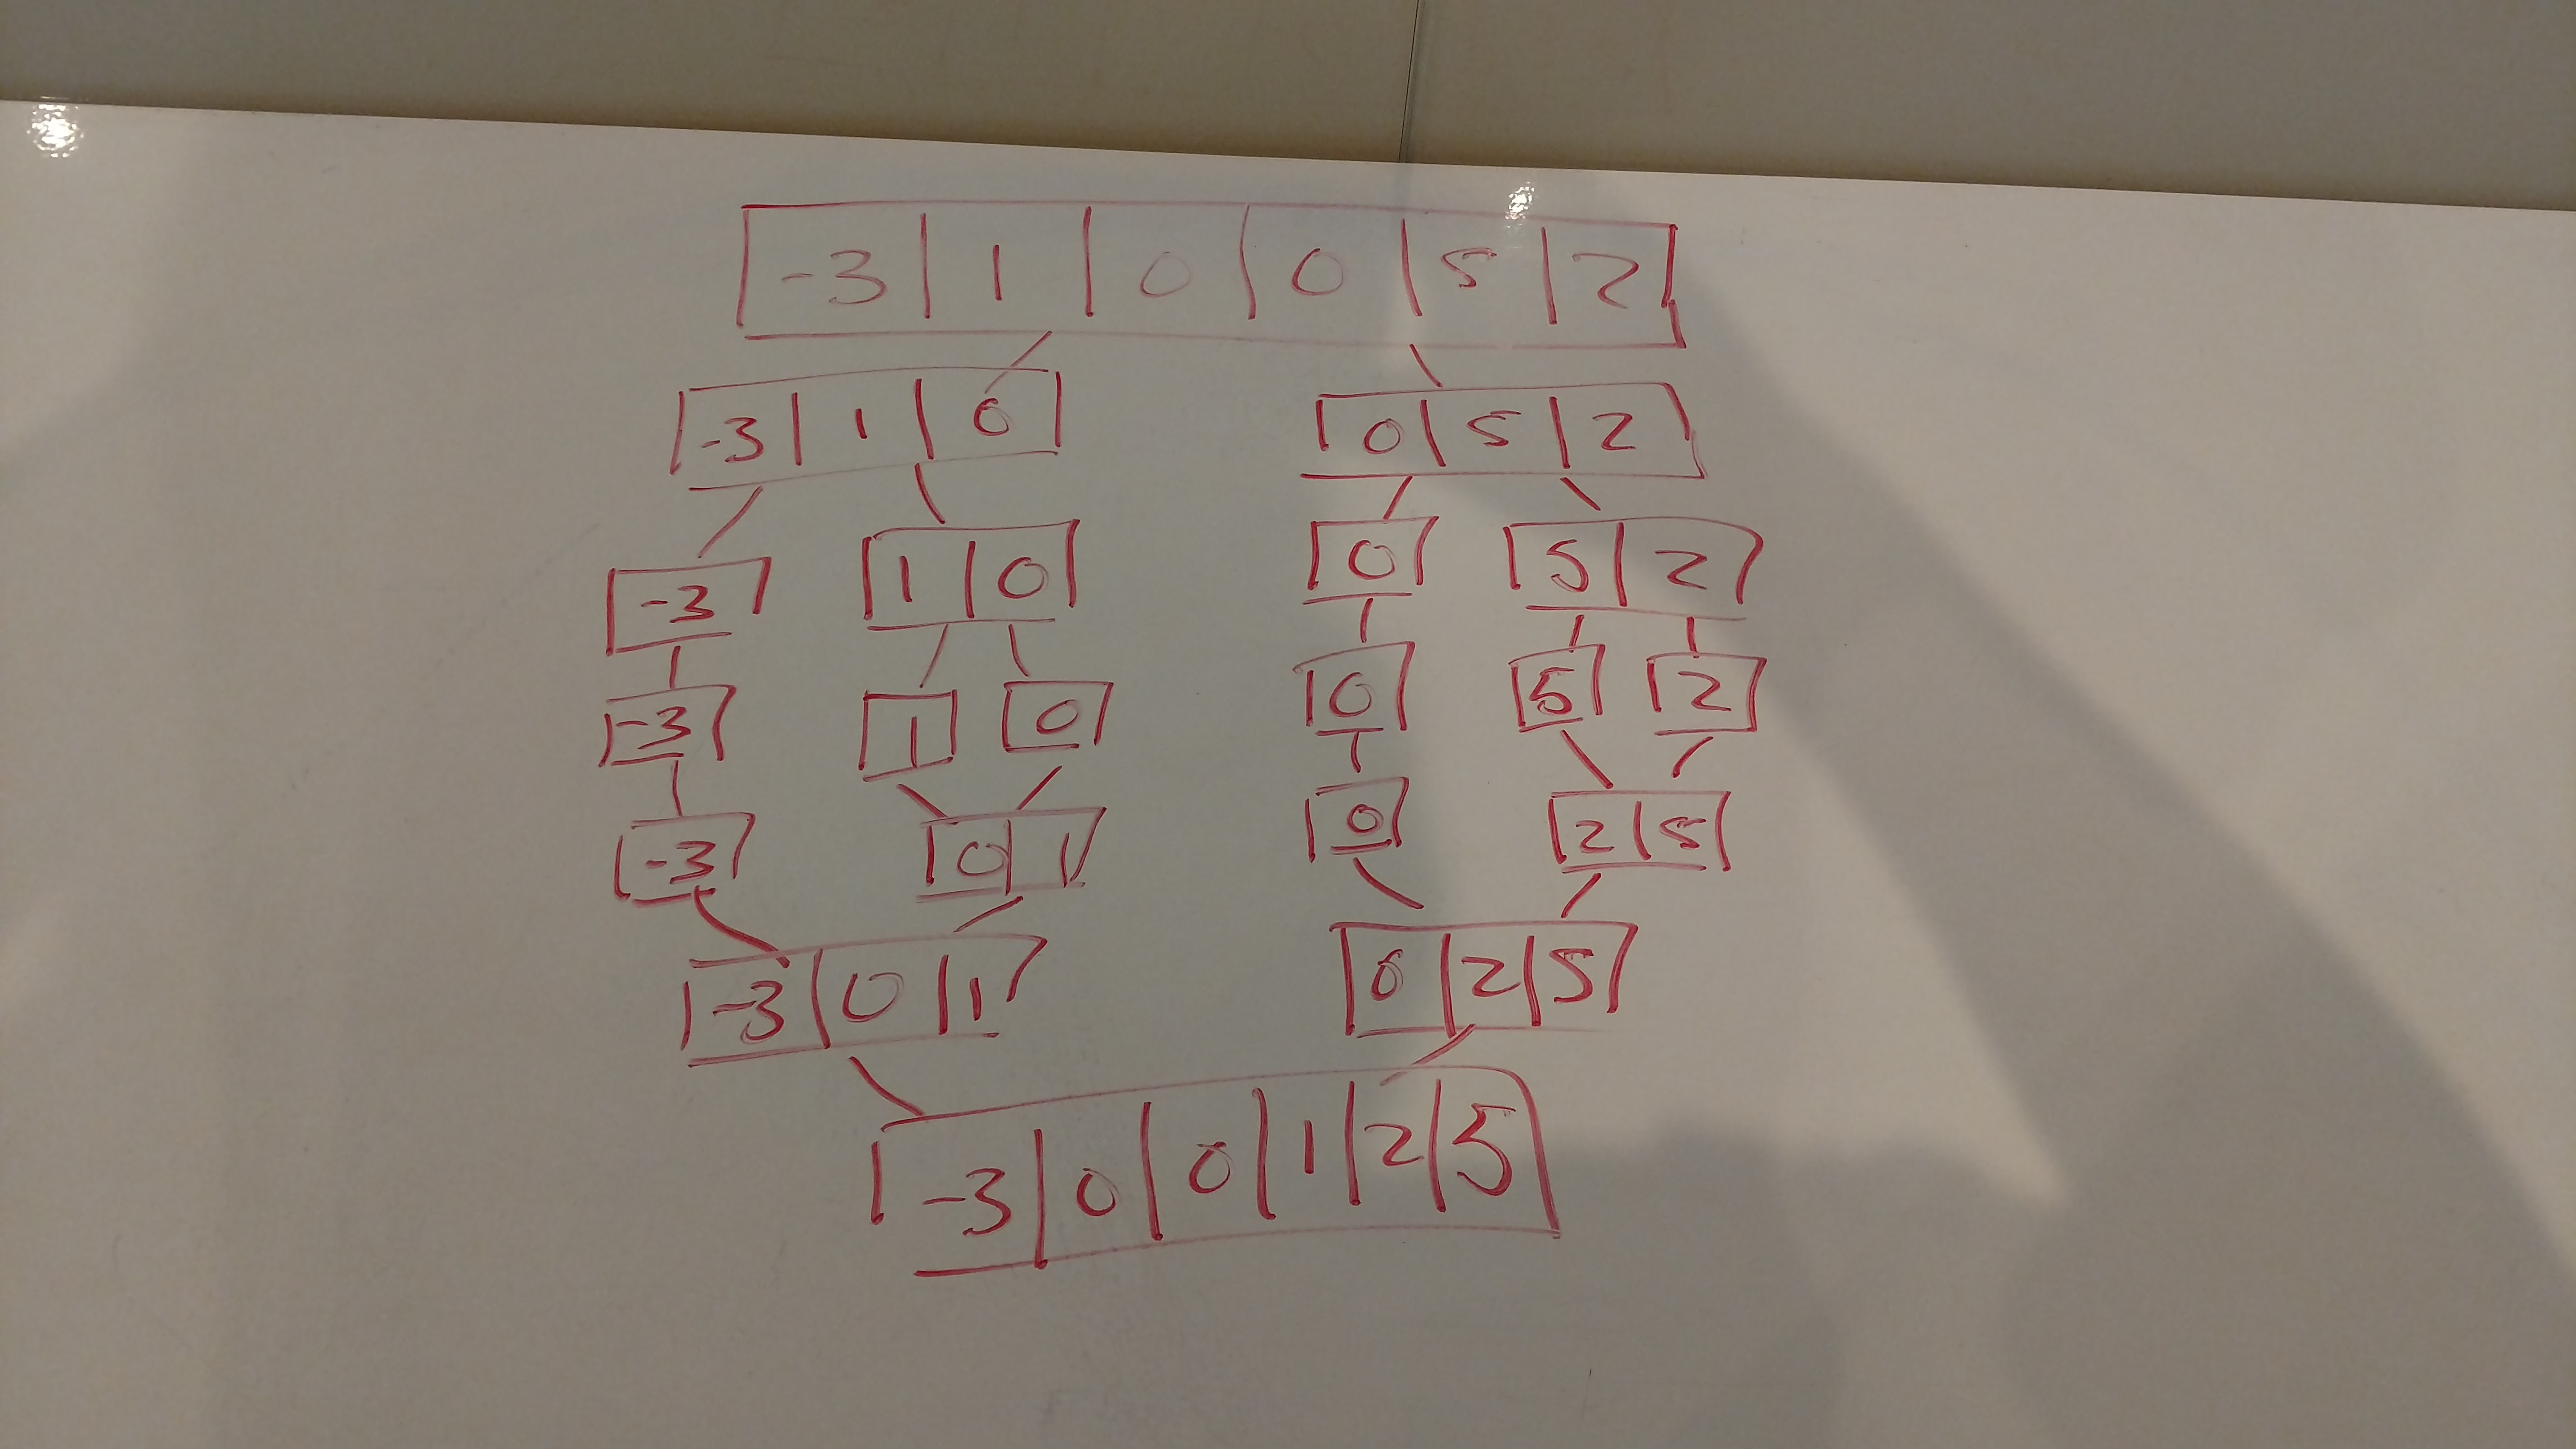 -3 | 1 | 0 | 0 | 5 | 2
-3 | 1 | 0   0 | 5 | 2
-3   1 | 0   0   5 | 2
-3   1   0   0   5   2
-3   0 | 1   0   2 | 5
-3 | 0 | 1   0 | 2 | 5
-3 | 0 | 0 | 1 | 2 | 5